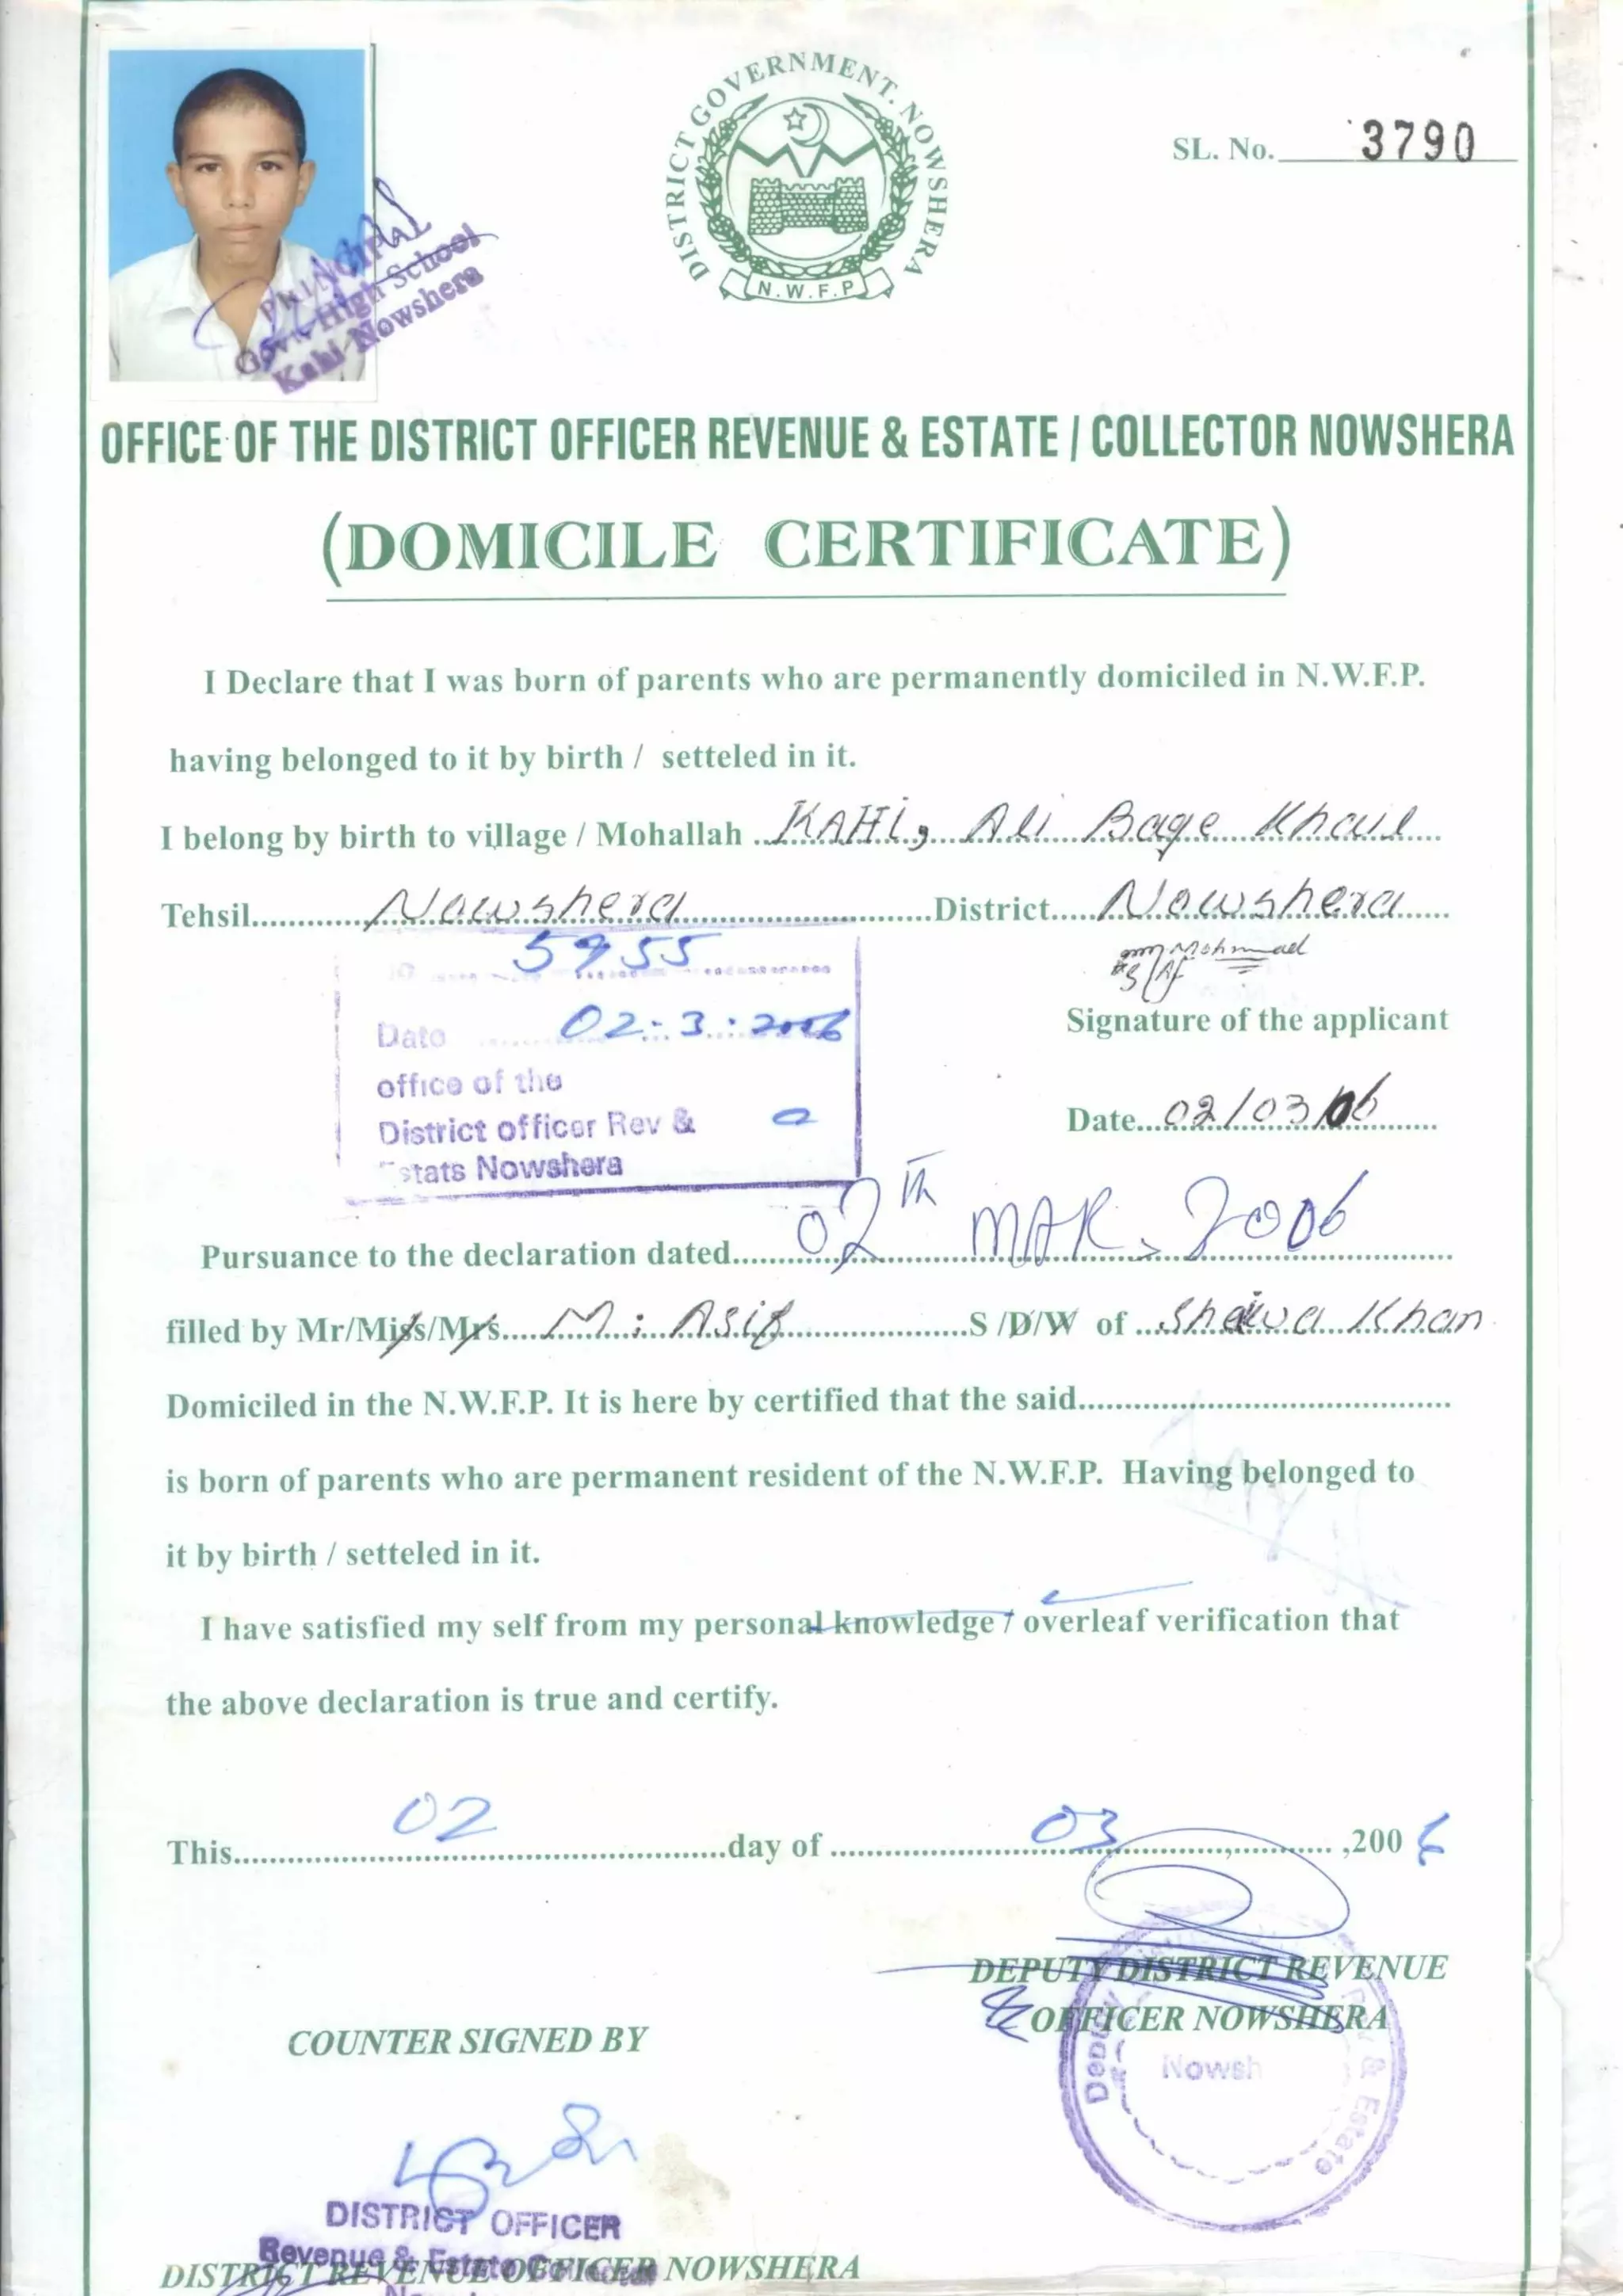 DISTRICT GOVERNMENT. NOWSHERA
N.W.F.P
SL. No. 3790
PRINCIPAL
Govt. High School
Kahi Nowshera
OFFICE OF THE DISTRICT OFFICER REVENUE & ESTATE / COLLECTOR NOWSHERA
(DOMICILE CERTIFICATE)
I Declare that I was born of parents who are permanently domiciled in N.W.F.P.
having belonged to it by birth / setteled in it.
I belong by birth to village / Mohallah KAHi, Ali Bage Khail
Tehsil Nowshera District Nowshera
5955
Mohmmad
Date 02:3:2006
Signature of the applicant
office of the
District officer Rev &
Date 02/03/06
stats Nowshera
Pursuance to the declaration dated 02Th MAR, 2006
filled by Mr/Miss/Mrs M: Asif S /D/W of Shawa Khan
Domiciled in the N.W.F.P. It is here by certified that the said
is born of parents who are permanent resident of the N.W.F.P. Having belonged to
it by birth / setteled in it.
I have satisfied my self from my personal knowledge / overleaf verification that
the above declaration is true and certify.
This 02 day of 03 ,2006
DEPUTY DISTRICT REVENUE
OFFICER NOWSHERA
Deputy
Rev & Estate
Nowsh
COUNTER SIGNED BY
DISTRICT OFFICER
Revenue & Estate
DISTRICT REVENUE OFFICER NOWSHERA